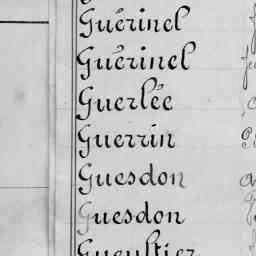 Guérinel
Guérinel
Guerlée
Guerrin
Guesdon
Guesdon
Gueultier